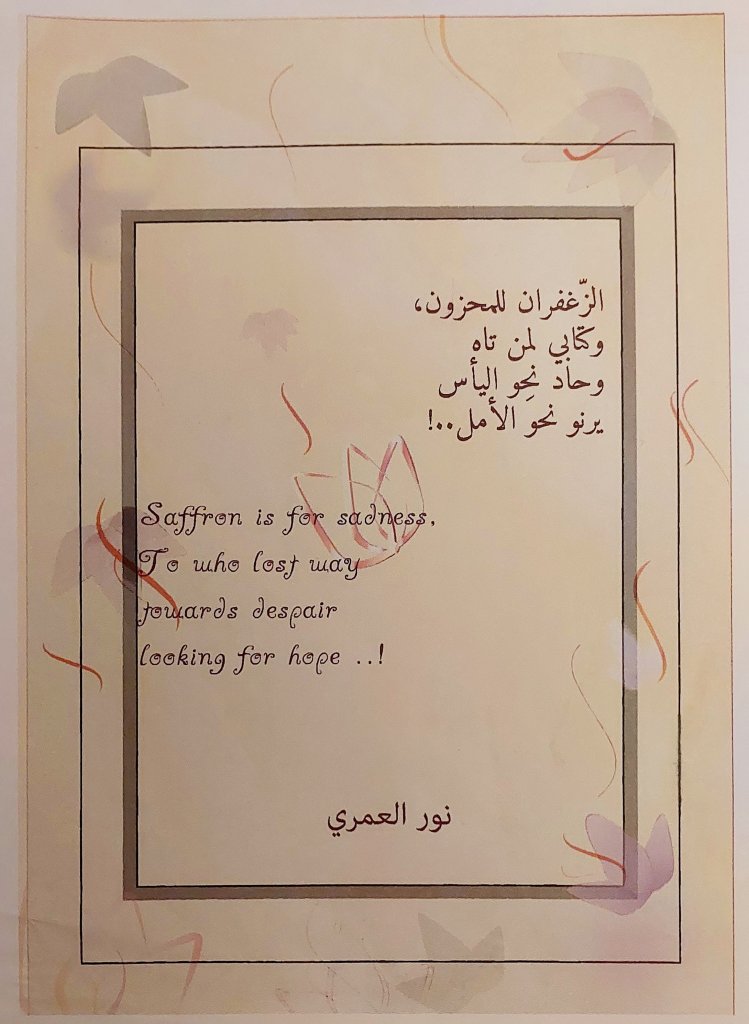 الزّغفران للمحزون،
وكتابي لمن تاه
وحاد نحِو اليأس
يرنو نحو الأمل..!
Saffron is for sadness,
To who lost way
towards despair
looking for hope ..!
نور العمري